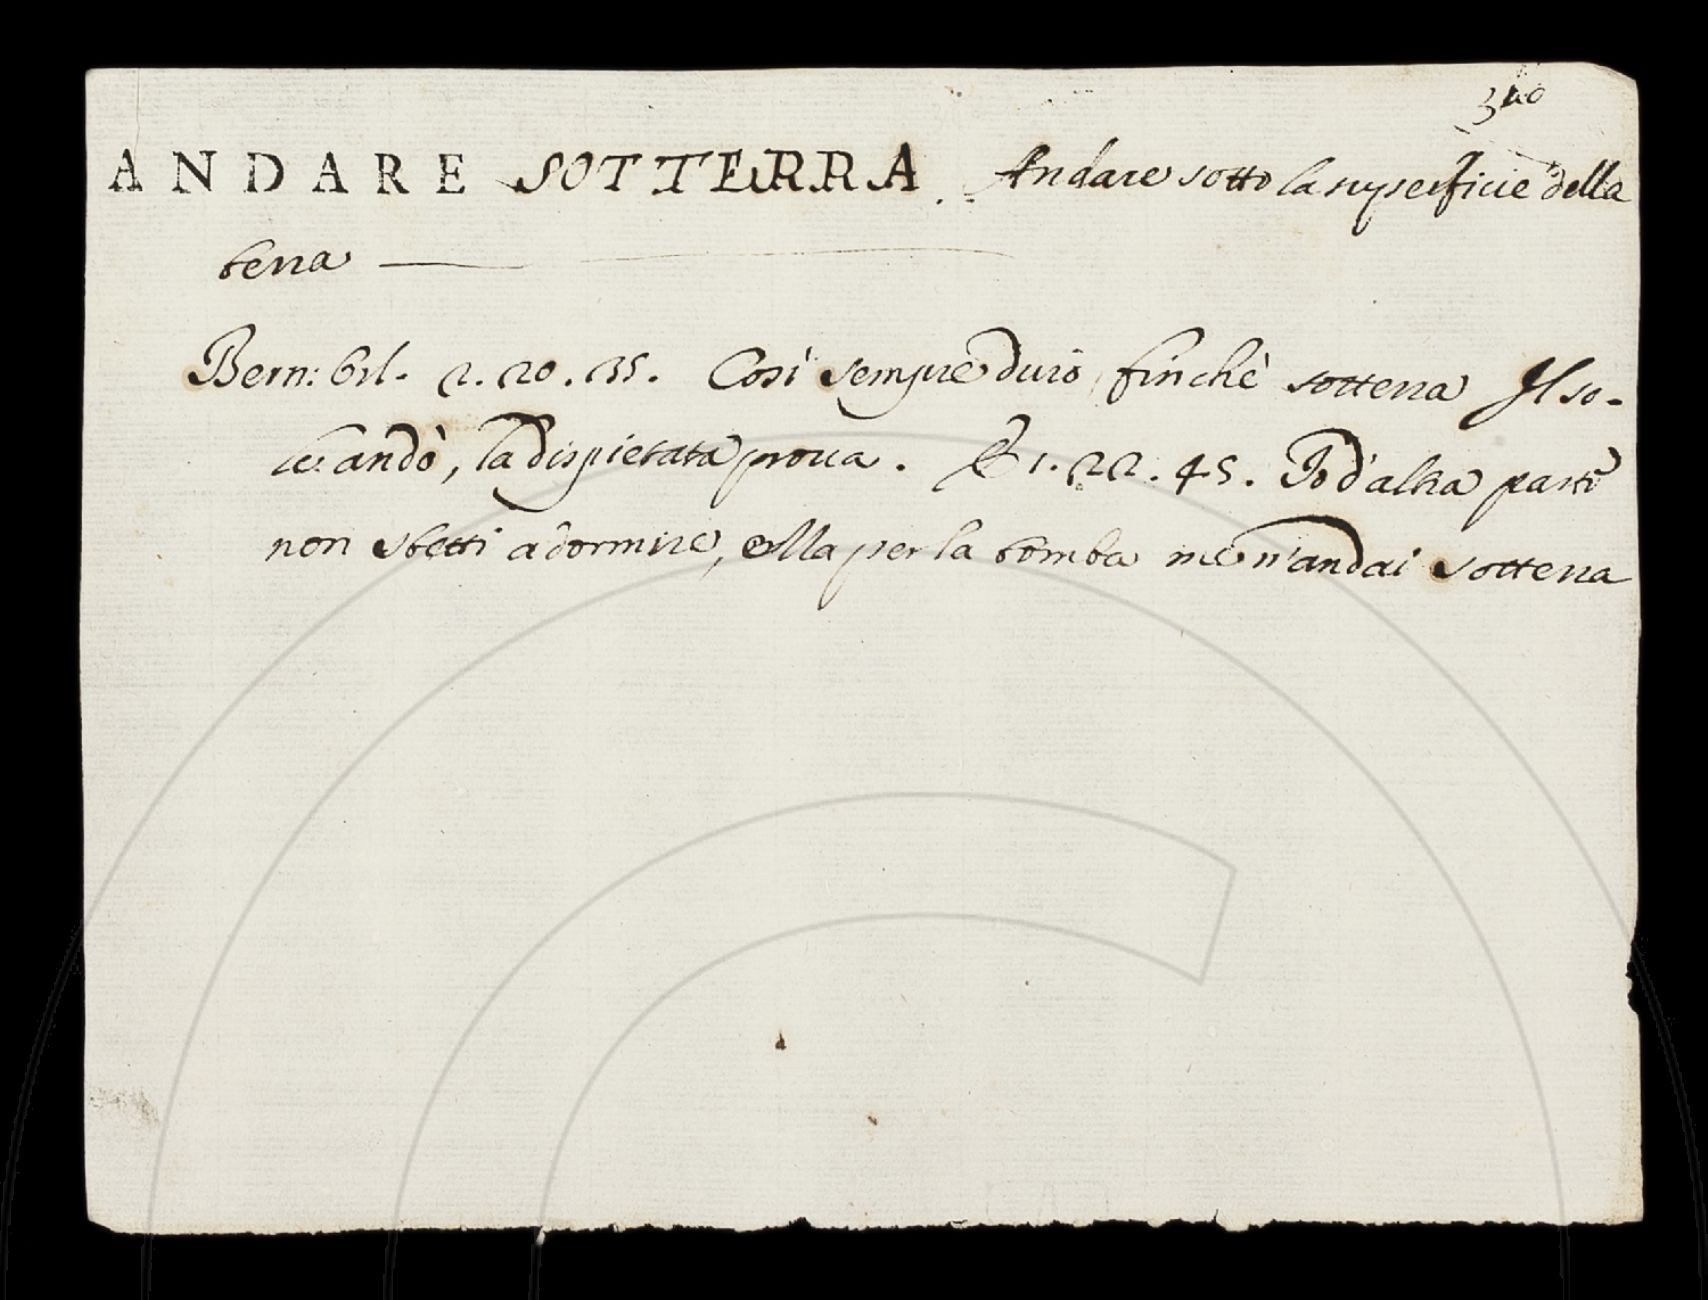 340
ANDARE SOTTERRA. Andare sotto la superficie della
terra
Bern: Orl. 2. 20. 35. Così sempre durò, finchè sotterra Il so-
le andò, la dispietata prova. E 1. 22. 45. Io d'altra parte
non stetti a dormire, e lla per la tomba me n'andai sotterra